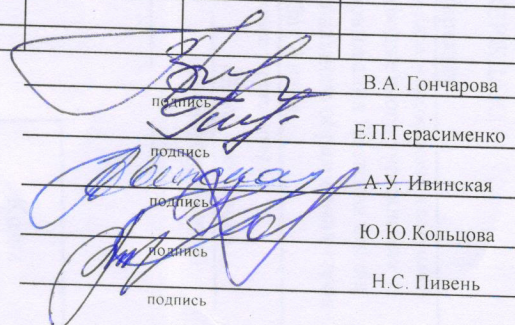 В.А. Гончарова
подпись
Е.П.Герасименко
подпись
А.У. Ивинская
подпись
Ю.Ю.Кольцова
подпись
Н.С. Пивень
подпись